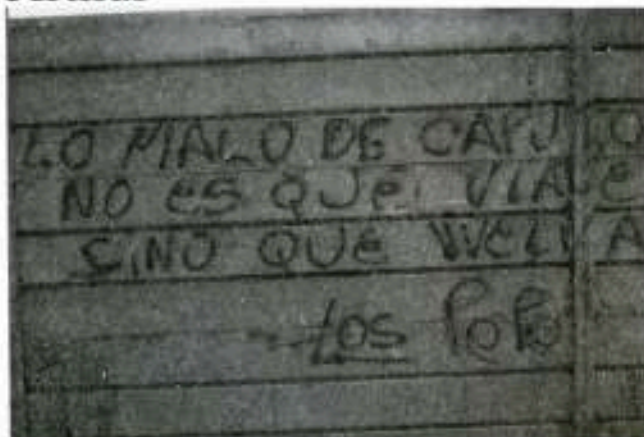 LO MALO DE
NO es QUe VIAJE
SINO QUe VUELVA
Los PoPo